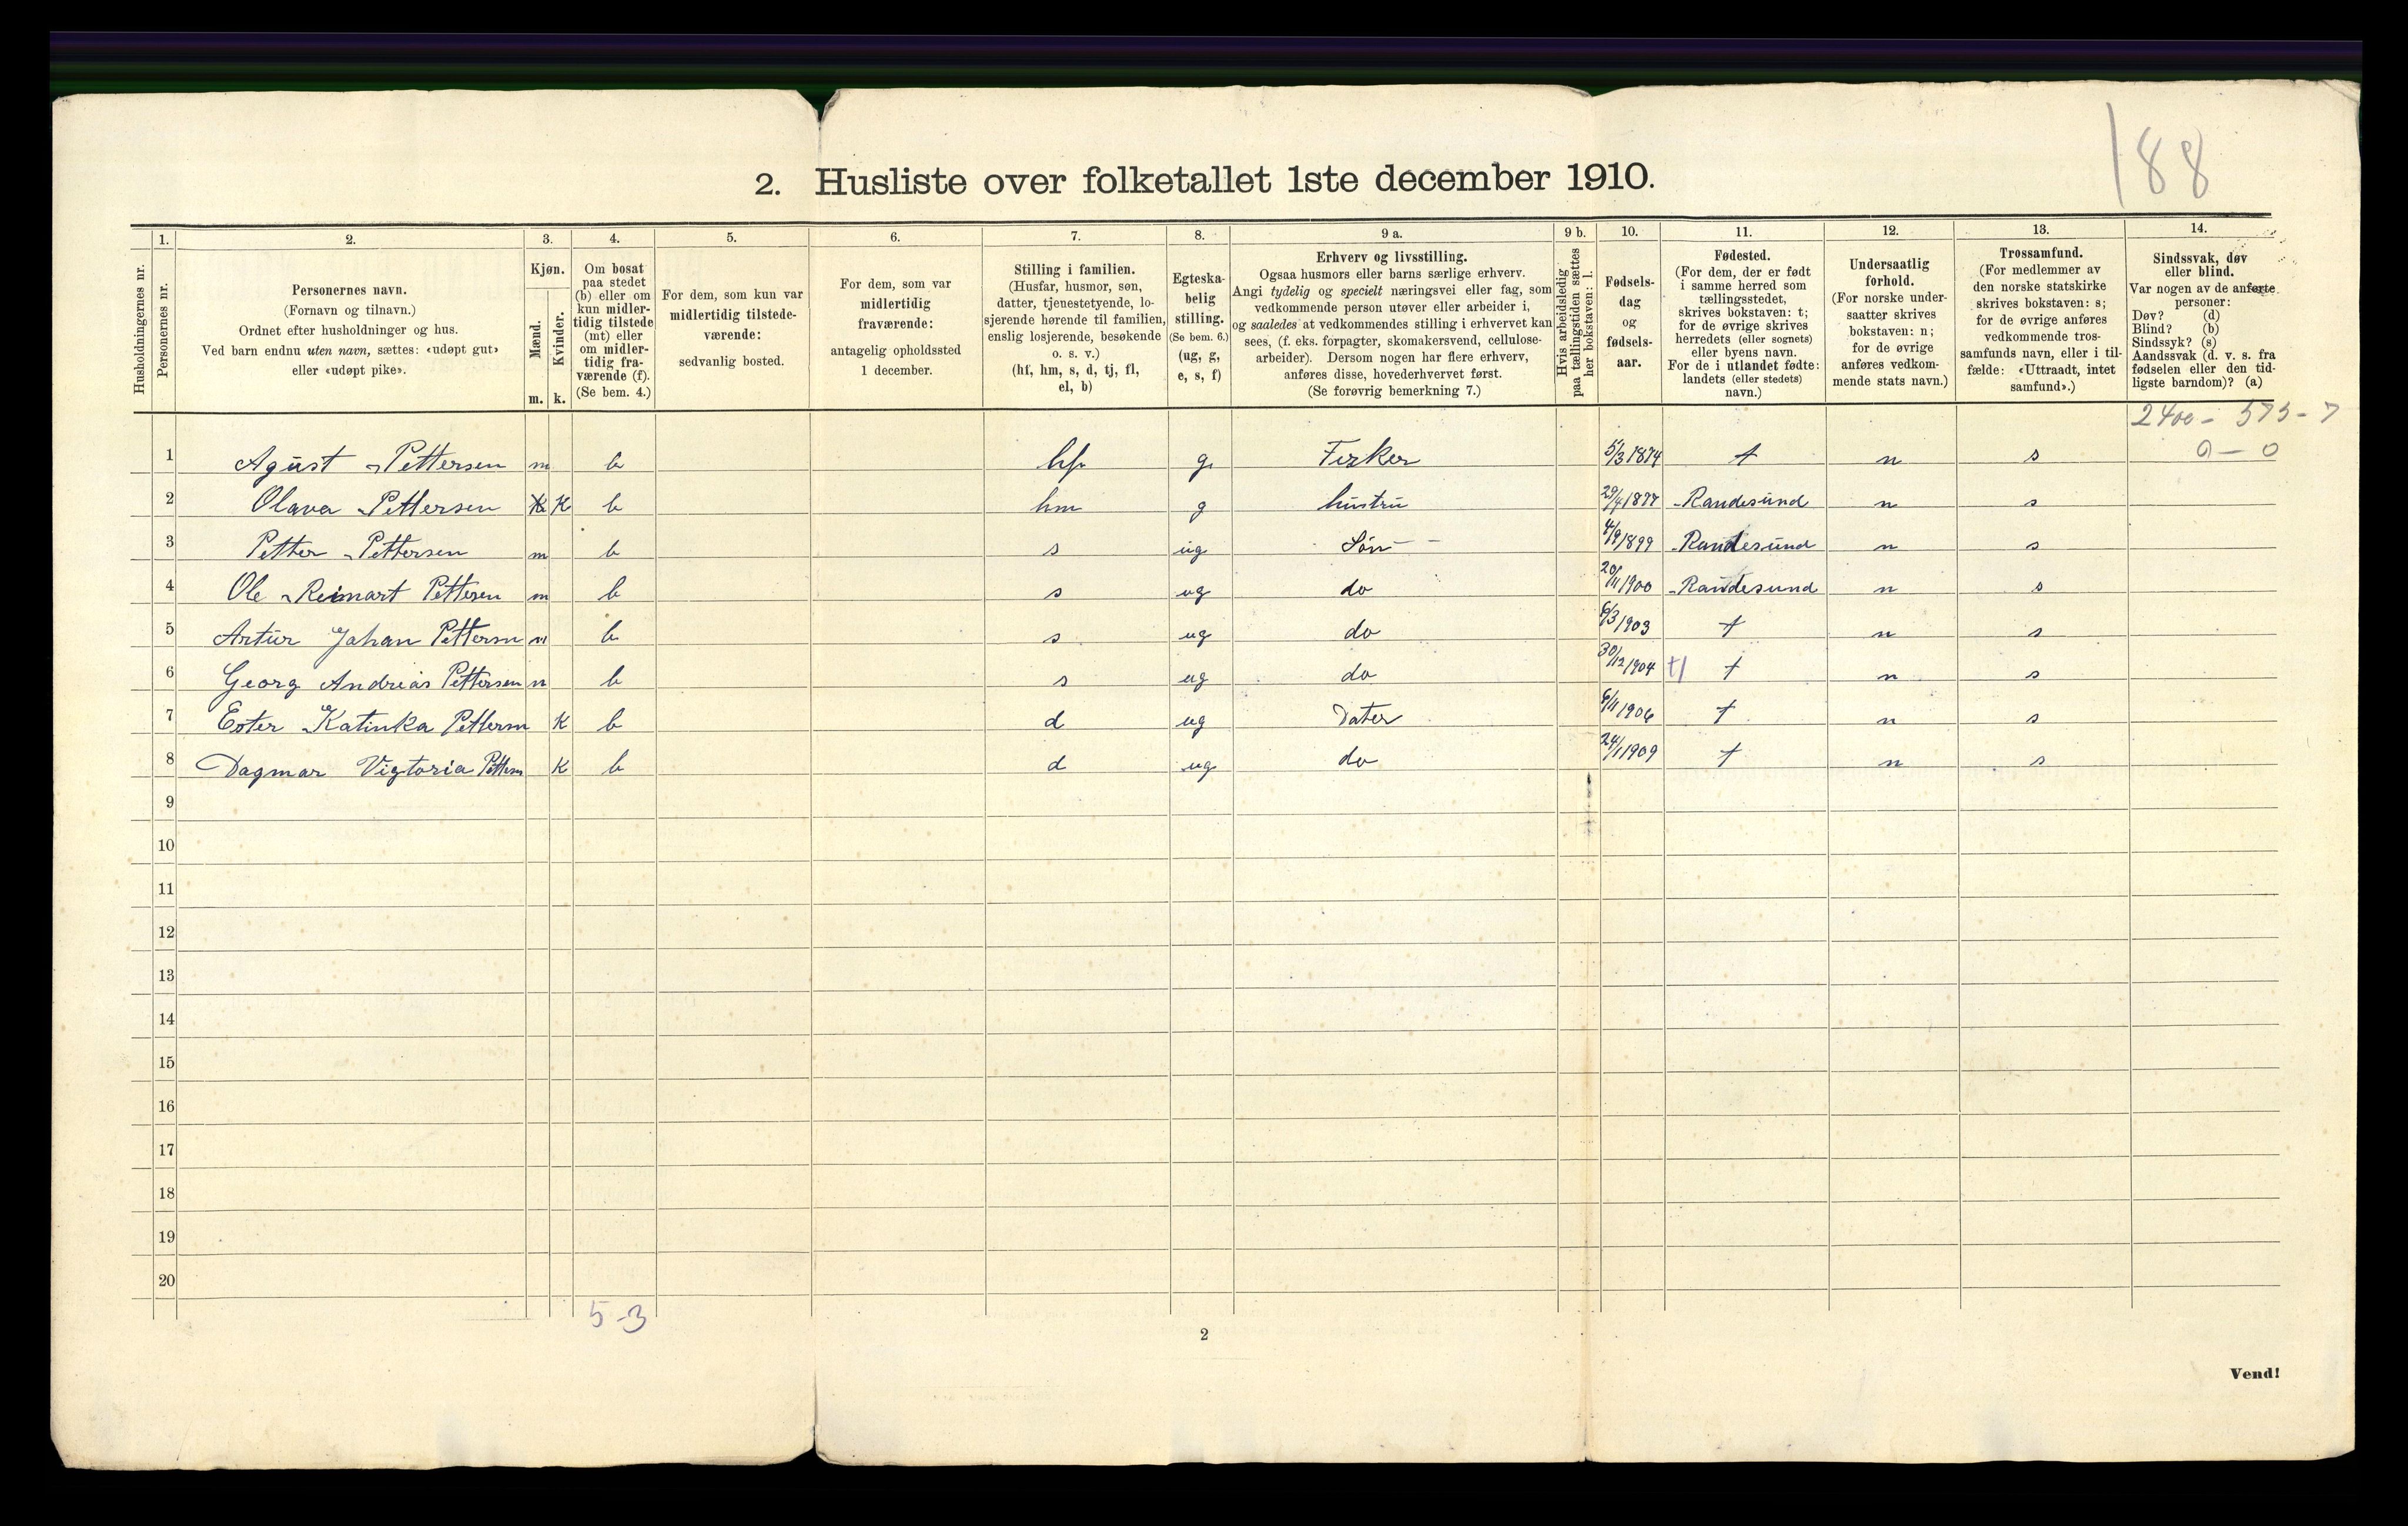 188
2. Husliste over folketallet 1ste december 1910.
1. 2. 3. 4. 5. 6. 7. 8. 9 a. 9 b. 10. 11. 12. 13. 14.
Husholdningernes nr.
Personernes nr.
Personernes navn.
(Fornavn og tilnavn.)
Ordnet efter husholdninger og hus.
Ved barn endnu uten navn, sættes: «udøpt gut»
eller «udøpt pike».
Kjøn.
Mænd.
Kvinder.
m. k.
Om bosat
paa stedet
(b) eller om
kun midler-
tidig tilstede
(mt) eller
om midler-
tidig fra-
værende (f).
(Se bem. 4.)
For dem, som kun var
midlertidig tilstede-
værende:
sedvanlig bosted.
For dem, som var
midlertidig
fraværende:
antagelig opholdssted
1 december.
Stilling i familien.
(Husfar, husmor, søn,
datter, tjenestetyende, lo-
sjerende hørende til familien,
enslig losjerende, besøkende
o. s. v.)
(hf, hm, s, d, tj, fl,
el, b)
Egteska-
belig
stilling.
(Se bem. 6.)
(ug, g,
e, s, f)
Erhverv og livsstilling.
Ogsaa husmors eller barns særlige erhverv.
Angi tydelig og specielt næringsvei eller fag, som
vedkommende person utøver eller arbeider i,
og saaledes at vedkommendes stilling i erhvervet kan
sees, (f. eks. forpagter, skomakersvend, cellulose-
arbeider). Dersom nogen har flere erhverv,
anføres disse, hovederhvervet først.
(Se forøvrig bemerkning 7.)
Hvis arbeidsledig
paa tællingstiden sættes
her bokstaven: l.
Fødsels-
dag
og
fødsels-
aar.
Fødested.
(For dem, der er født
i samme herred som
tællingsstedet,
skrives bokstaven: t;
for de øvrige skrives
herredets (eller sognets)
eller byens navn.
For de i utlandet fødte:
landets (eller stedets)
navn.)
Undersaatlig
forhold.
(For norske under-
saatter skrives
bokstaven: n;
for de øvrige
anføres vedkom-
mende stats navn.)
Trossamfund.
(For medlemmer av
den norske statskirke
skrives bokstaven: s;
for de øvrige anføres
vedkommende tros-
samfunds navn, eller i til-
fælde: «Uttraadt, intet
samfund».)
Sindssvak, døv
eller blind.
Var nogen av de anførte
personer:
Døv? (d)
Blind? (b)
Sindssyk? (s)
Aandssvak (d. v. s. fra
fødselen eller den tid-
ligste barndom)? (a)
2400 - 575 - 7
0 - 0
1 Agust Pettersen m b hf g. Fisker 5/3 1874 t n s
2 Olava Pettersen K K b hm g hustru 29/4 1877 Randesund n s
3 Petter Pettersen m b s ug Søn 4/9 1899 Randesund n s
4 Ole Reimart Pettersen m b s ug do 20/11 1900 Randesund n s
5 Artur Johan Pettersn m b s ug do 6/3 1903 t n s
6 Georg Andreas Pettersen m b s ug do 30/12 1904 t n s
7 Ester Katinka Pettersn K b d ug Dater 6/11 1906 t n s
8 Dagmar Vigtoria Petters K b d ug do 24/1 1909 t n s
9
10
11
12
13
14
15
16
17
18
19
20
5-3
2
Vend!